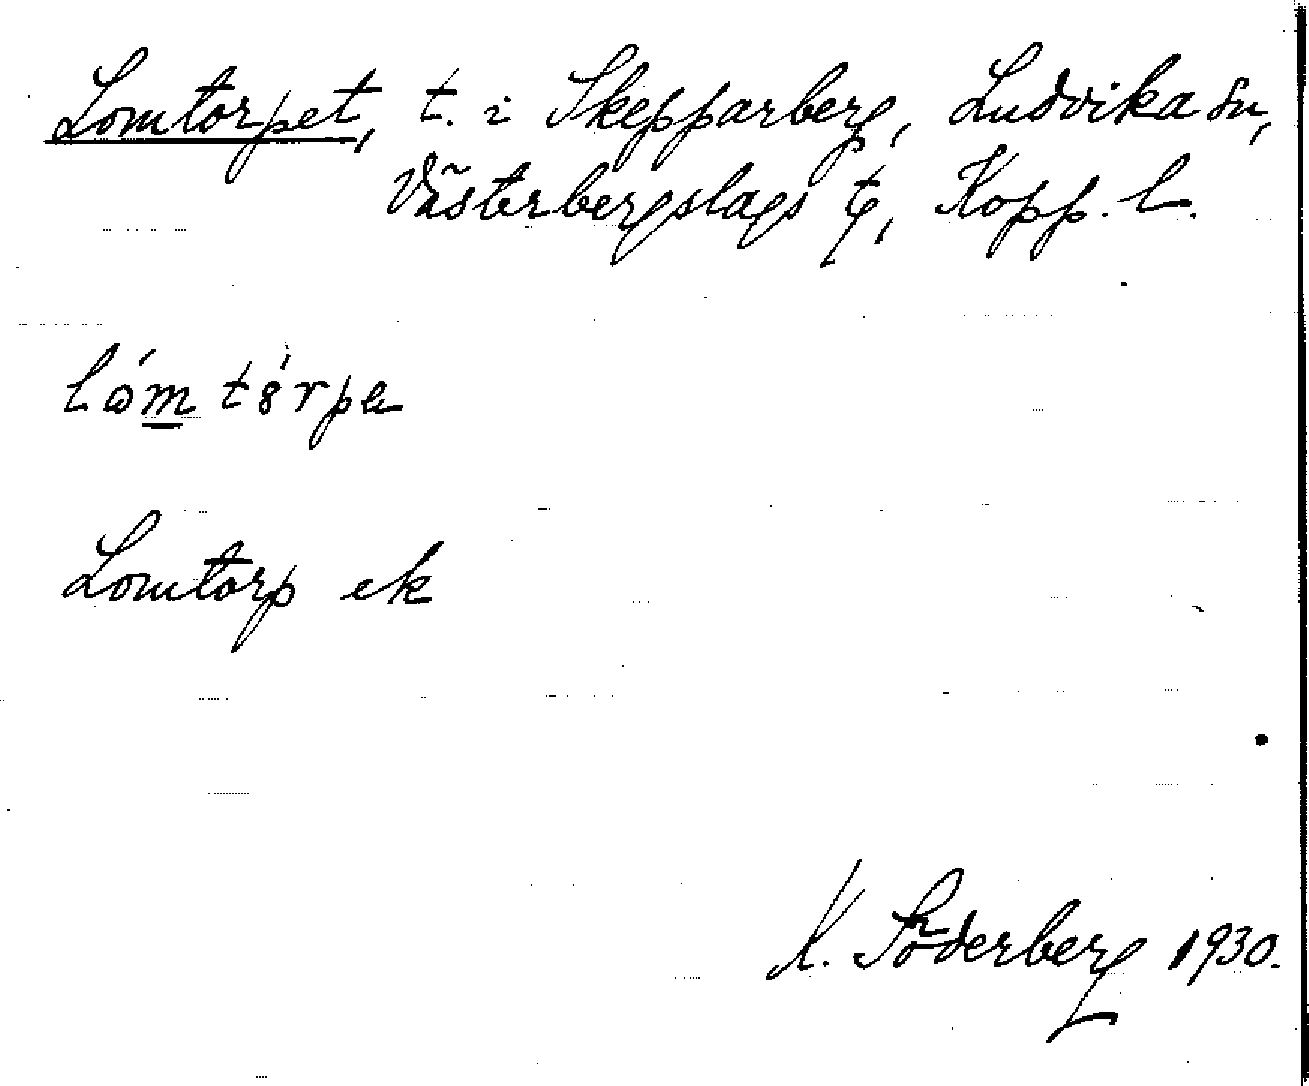 Lomtorpet, t. i Skepparberg, Ludvika sn,
Västerbergslags tg, Kopp. l.
lóm tó̀rpe
Lomtorp ek
K. Söderberg 1930.